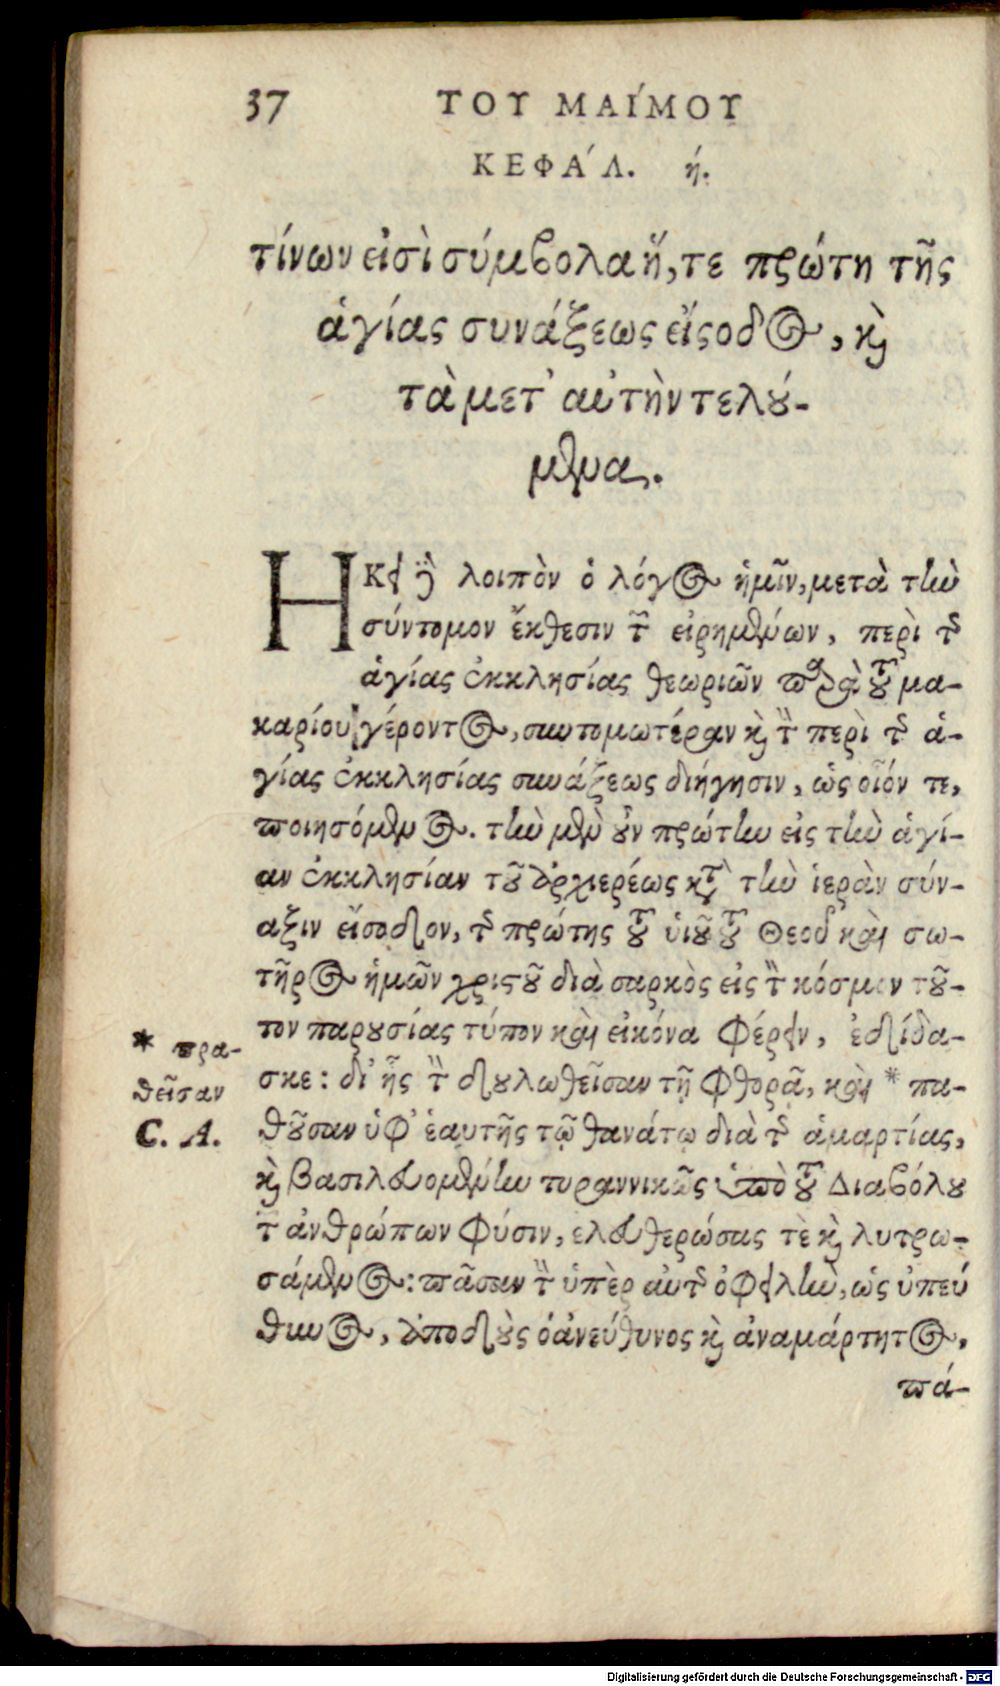 37 ΤΟΥ ΜΑΙΜΟΥ
ΚΕΦΑΛ. ή.
τίνων εἰσὶ σύμβολα ἥ,τε πρώτη τῆς
ἁγίας συνάξεως εἴσοδος, καὶ
τὰ μετ᾽ αὐτὴν τελού-
μενα.
Ηκει ἢ λοιπὸν ὁ λόγος ἡμῖν, μετὰ τὴν
σύντομον ἔκθεσιν τῶν εἰρημένων, περὶ τῆς
ἁγίας ἐκκλησίας θεωριῶν παρὰ τοῦ μα-
καρίου γέροντος, συντομωτέραν καὶ τὴν περὶ τῆς ἁ-
γίας ἐκκλησίας συνάξεως διήγησιν, ὡς οἷόν τε,
ποιησόμενος. τὴν μὲν οὖν πρώτην εἰς τὴν ἁγί-
αν ἐκκλησίαν τοῦ ἀρχιερέως κατὰ τὴν ἱερὰν σύν-
αξιν εἴσοδον, τῆς πρώτης τοῦ ὑιοῦ τοῦ Θεοῦ καὶ σω-
τῆρος ἡμῶν χριστοῦ διὰ σαρκὸς εἰς τὸν κόσμον τοῦ-
τον παρουσίας τύπον καὶ εἰκόνα φέρειν, ἐδίδα-
σκε: δι᾽ ἧς τὴν δουλωθεῖσαν τῇ φθορᾷ, καὶ * πα-
θοῦσαν ὑφ᾽ ἑαυτῆς τῷ θανάτῳ διὰ τῆς ἁμαρτίας,
καὶ βασιλευομένην τυραννικῶς ὑπὸ τοῦ Διαβόλου
τῶν ἀνθρώπων φύσιν, ἐλευθερώσας τὲ καὶ λυτρω-
σάμενος: πᾶσαν τὴν ὑπὲρ αὐτῆς ὀφειλὴν, ὡς ὑπεύ
θυνος, ἀποδοὺς ὁ ἀνεύθυνος καὶ ἀναμάρτητος,
πά-
* πρα-
θεῖσαν
C. A.
Digitalisierung gefördert durch die Deutsche Forschungsgemeinschaft - DFG